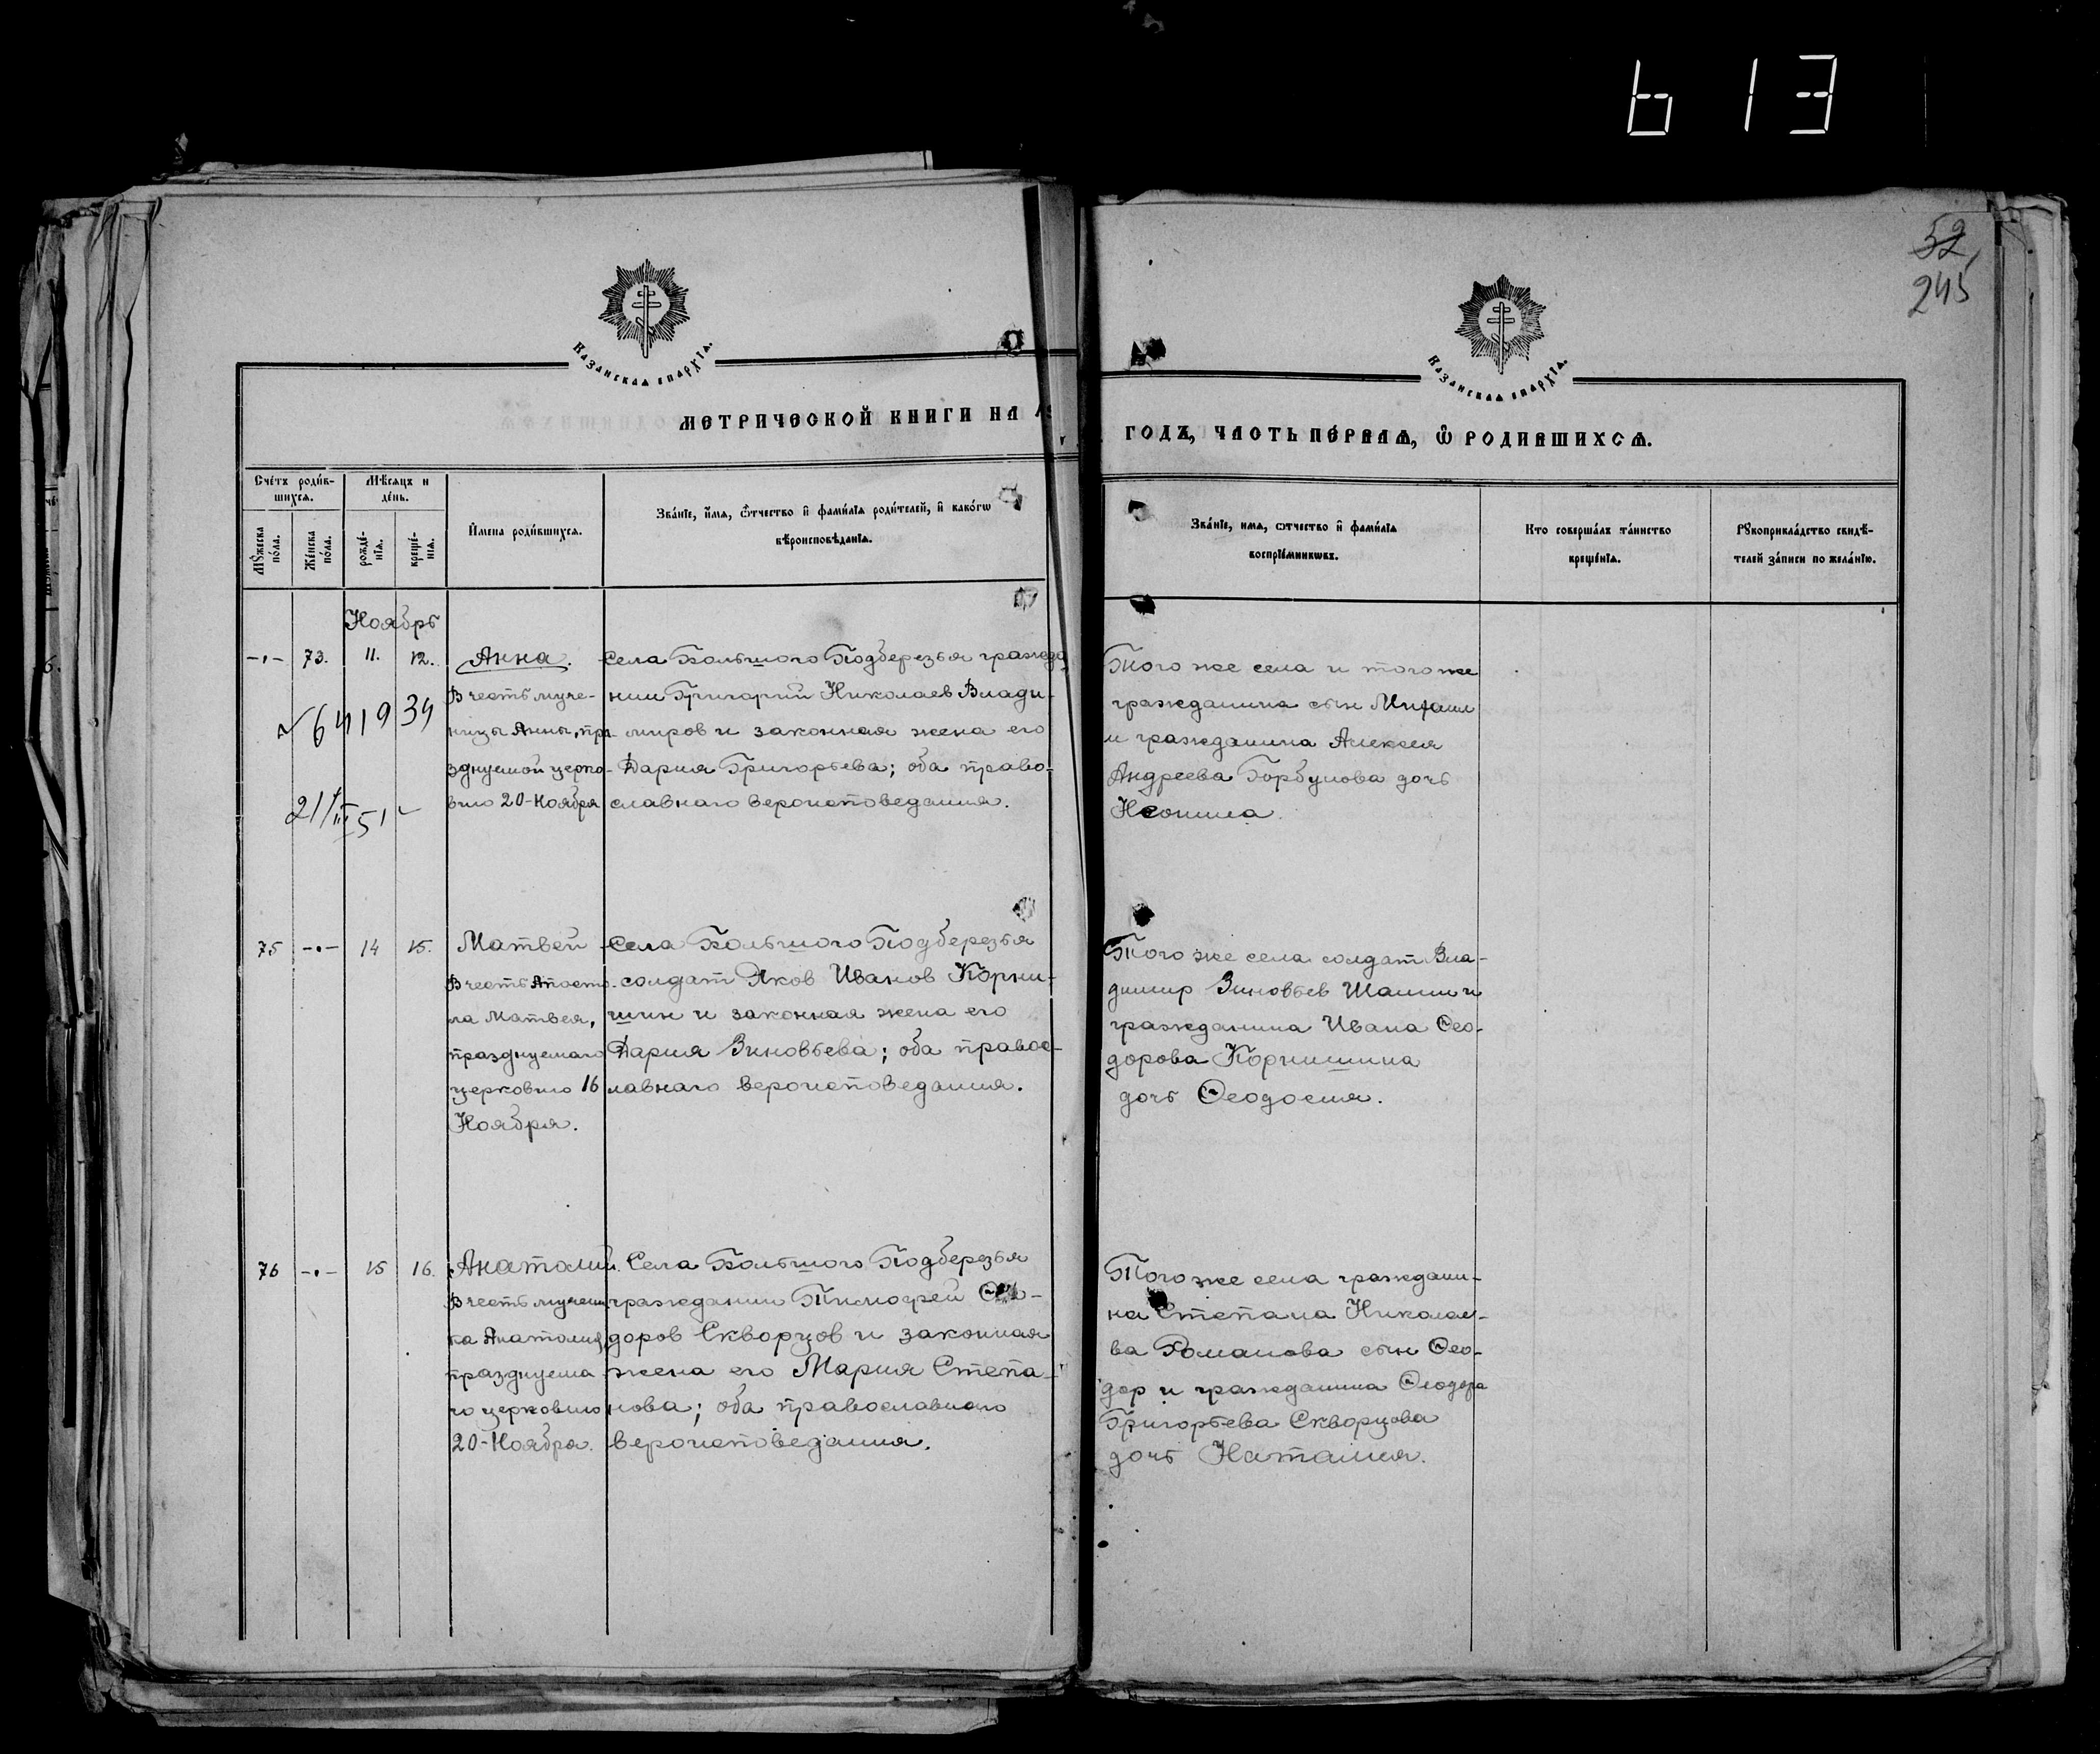 613
52
245
Казанская епархїя.
Казанская епархїя.
МЕТРИЧЕСКОЙ КНИГИ НА 19
ГОДЪ, ЧАСТЬ ПЕРВАЯ, Ѿ РОДИВШИХСЯ.
Сче́тъ роди́в-
шихся.
Мѣсяцъ и
де́нь.
Мꙋ́жеска
по́ла.
Же́нска
по́ла.
рожде́-
нїя.
креще́-
нїя.
И́мена роди́вшихся.
Зва́нїе, и́мя, ѻ́тчество и҆ фами́лїя роди́телей, и҆ како́гѡ
вѣроисповѣ́данїя.
Зва́нїе, имя, ѻтчество и҆ фами́лїя
воспрїе́мникѡвъ.
Кто соверша́лъ та́инство
креще́нїя.
Рꙋкоприкла́дство свидѣ́-
телей за́писи по жела́нїю.
Ноябрь
-·- 73. 11. 12. Анна.
В честь муче-
ницы Анны, пра-
зднуемой церко-
вию 20-Ноября
641934
21/III 51
Села Большого Подберезья гражда
нин Григорий Николаев Влади-
миров и законная жена его
Дария Григорьева; оба право-
славнаго вероисповедания.
Того же села и того же
гражданина сын Михаил
и гражданина Алексея
Андреева Горбунова дочь
Неонила.
75 -·- 14 15. Матвей
В честь Апосто-
ла Матвея,
празднуемаго
церковию 16
Ноября.
Села Большого Подберезья
солдат Яков Иванов Корни-
шин и законная жена его
Дария Зиновьева; оба правос-
лавнаго вероисповедания.
Того же села солдат Вла-
димир Зиновьев Шашин и
гражданина Ивана Ѳео-
дорова Корнишина
дочь Ѳеодосия.
76 -·- 15 16. Анатолий.
В честь мучени
ка Анатолия,
празднуема
го церковию
20-Ноября.
Села Большого Подберезья
гражданин Тимофей Ѳео-
доров Скворцов и законная
жена его Мария Степа-
нова; оба православнаго
вероисповедания.
Того же села граждани-
на Степана Николае-
ва Романова сын Ѳео-
дор и гражданина Ѳеодора
Григорьева Скворцова
дочь Наталия.